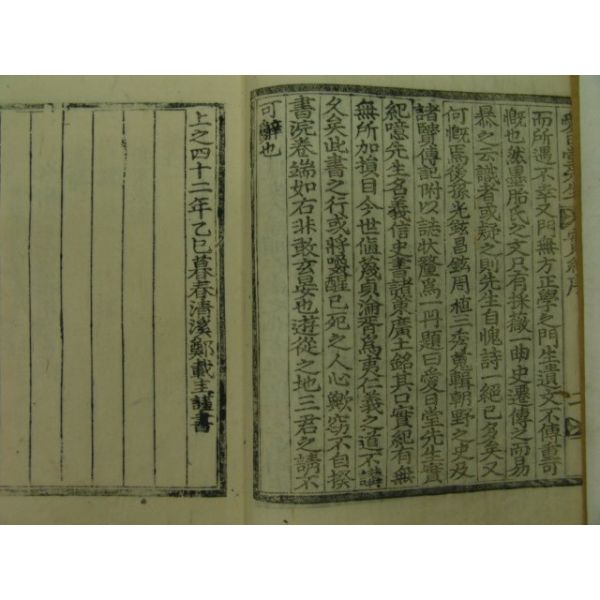 愛日堂先生實紀序
而所遇不幸又門無方正學之門生遺文不傳重可
慨也然墨胎氏之文只有採薇一曲史遷傳之而易
暴之云識者或疑之則先生自愧詩一絕已多矣又
何慨焉後孫光鉉昌鉉周植三秀甫輯朝野之史及
諸賢傳記附以誌狀釐爲一冊題曰愛日堂先生實
紀噫先生名義信史書諸策廣土銘其口實紀有無
無所加損目今世値蔑貞淪胥爲夷仁義之道不講
久矣此書之行或將嚼醒已死之人心歟窃不自揆
書浣卷端如右非敢玄晏也遊從之地三君之請不
可辭也
上之四十二年乙巳暮春淸溪鄭載圭謹書